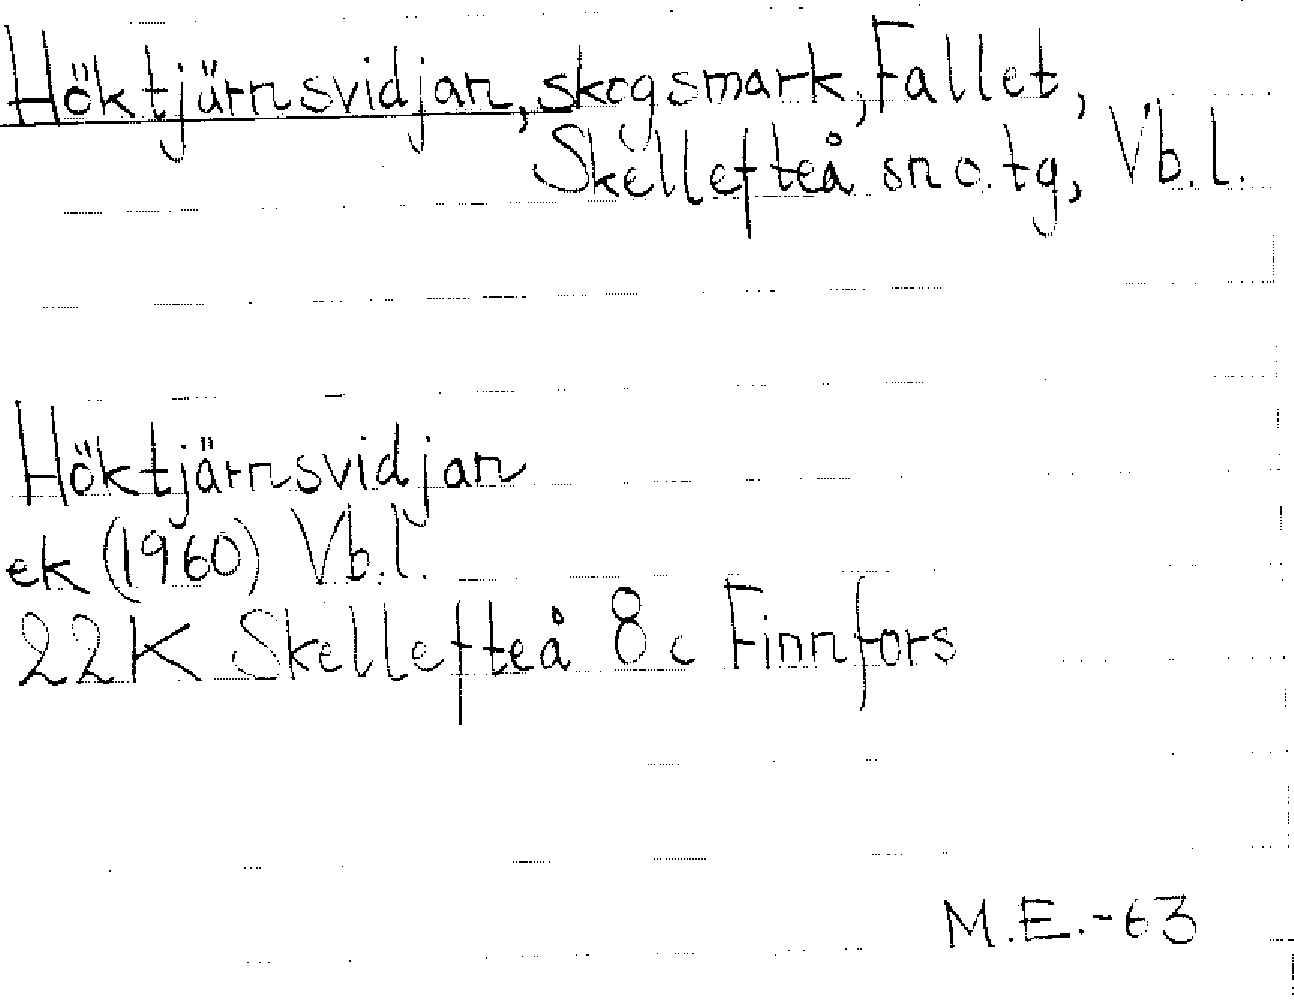 Höktjärnsvidjan, skogsmark, Fallet,
Skellefteå sn o. tg, Vb. l.
Höktjärnsvidjan
ek (1960) Vb. l.
22K Skellefteå 8c Finnfors
M.E.-63